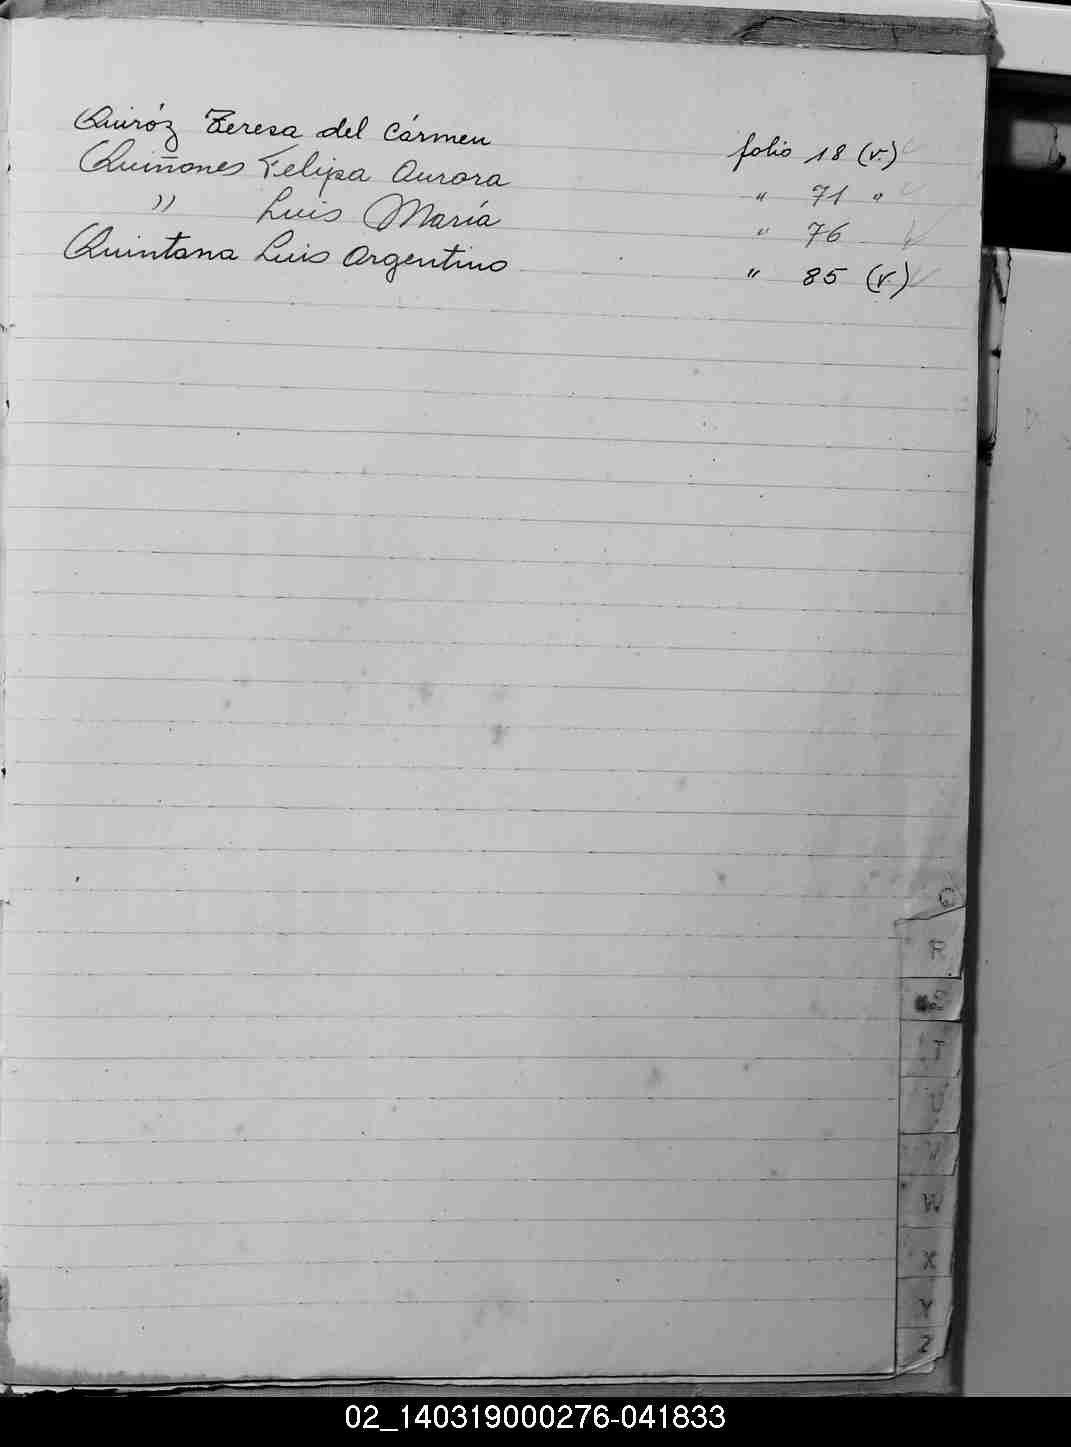 Quiróz Teresa del Cármen folio 18 (v.)
Quiñones Felipa Aurora " 71 "
" Luis María " 76
Quintana Luis Argentino " 85 (v.)
Q
R
S
T
U
V
W
X
Y
Z
02_140319000276-041833